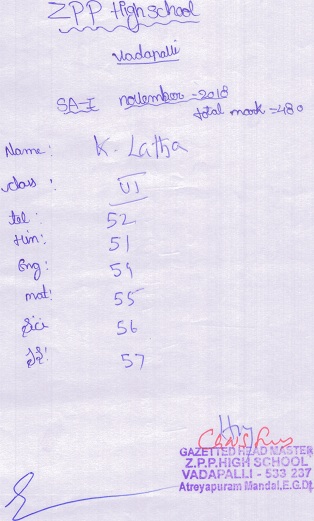 ZPP High school
Vadapalli
SA-I november-2018
total mark =480
Name: K. Latha
class: VI
tel: 52
Hin: 51
Eng: 54
mat: 55
56
57
GAZETTED HEAD MASTER
Z.P.P.HIGH SCHOOL
VADAPALLI - 533 237
Atreyapuram Mandal,E.G.Dt.